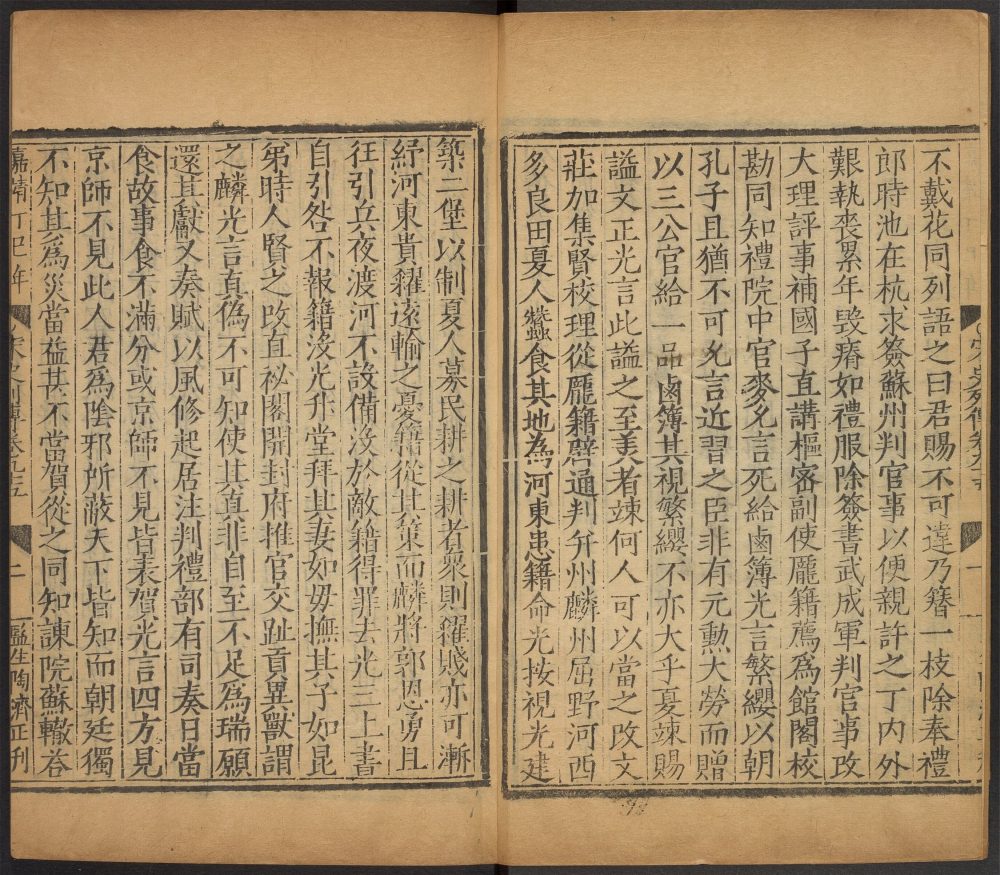 宋史列傳卷九十五 一
不戴花同列語之曰君賜不可違乃簪一枝除奉禮
郎時池在杭求簽蘇州判官事以便親許之丁内外
艱執喪累年毀瘠如禮服除簽書武成軍判官事改
大理評事補國子直講樞密副使龐籍薦爲館閣校
勘同知禮院中官麥允言死給鹵簿光言繁纓以朝
孔子且猶不可允言近習之臣非有元勳大勞而贈
以三公官給一品鹵簿其視繁纓不亦大乎夏竦賜
謚文正光言此謚之至美者竦何人可以當之改文
莊加集賢校理從龐籍辟通判并州麟州屈野河西
多良田夏人蠶食其地為河東患籍命光按視光建
築二堡以制夏人募民耕之耕者衆則糴賤亦可漸
紓河東貴糴遠輸之憂籍從其策而麟將郭恩勇且
狂引兵夜渡河不設備没於敵籍得罪去光三上書
自引咎不報籍没光升堂拜其妻如母撫其子如昆
弟時人賢之改直祕閣開封府推官交趾貢異獸謂
之麟光言真偽不可知使其真非自至不足爲瑞願
還其獻又奏賦以風修起居注判禮部有司奏日當
食故事食不滿分或京師不見皆表賀光言四方見
京師不見此人君爲陰邪所蔽天下皆知而朝廷獨
不知其爲災當益甚不當賀從之同知諫院蘇轍荅
嘉靖丁巳年 宋史列傳卷九十五 二 監生陶濟正刊